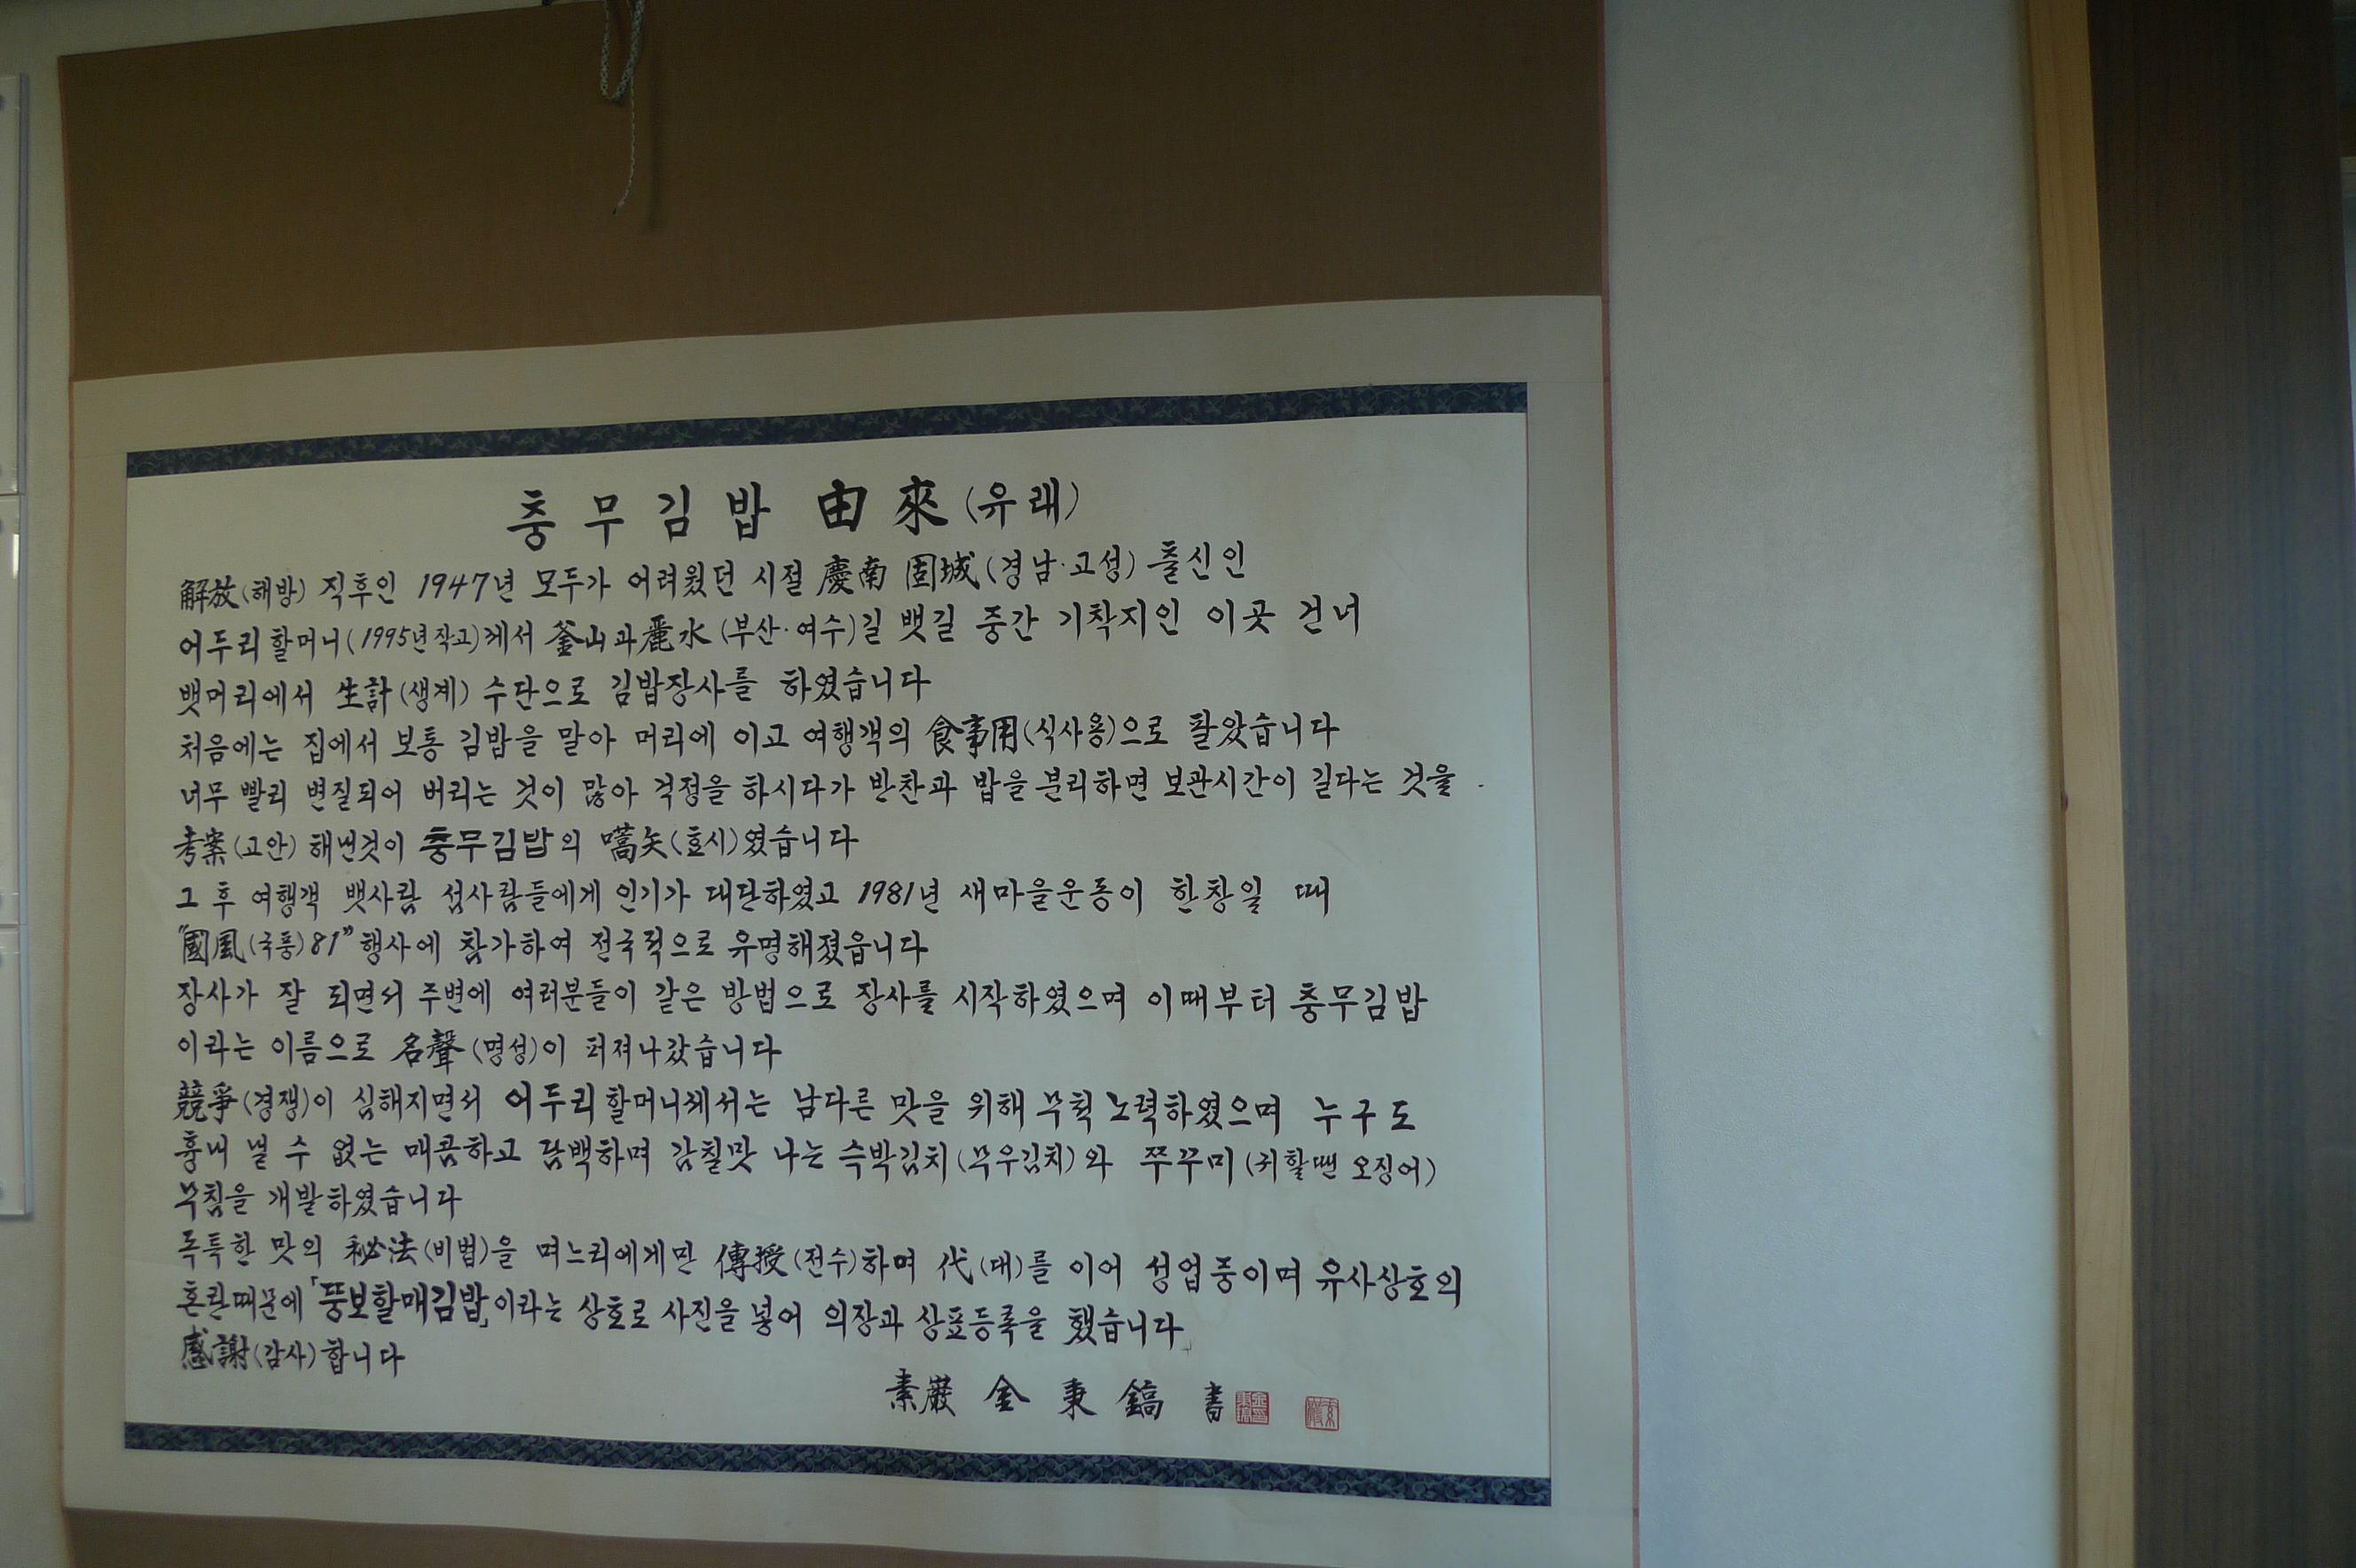 충무김밥 由來(유래)
解放(해방) 직후인 1947년 모두가 어려웠던 시절 慶南 固城(경남·고성) 출신인
어두리할머니(1995년작고)께서 釜山과麗水(부산·여수)길 뱃길 중간 기착지인 이곳 건너
뱃머리에서 生計(생계) 수단으로 김밥장사를 하였습니다
처음에는 집에서 보통 김밥을 말아 머리에 이고 여행객의 食事用(식사용)으로 팔았습니다
너무 빨리 변질되어 버리는 것이 많아 걱정을 하시다가 반찬과 밥을 분리하면 보관시간이 길다는 것을
考案(고안) 해낸것이 충무김밥의 嚆矢(효시)였습니다
그 후 여행객 뱃사람 섬사람들에게 인기가 대단하였고 1981년 새마을운동이 한창일 때
"國風(국풍)81" 행사에 참가하여 전국적으로 유명해졌읍니다
장사가 잘 되면서 주변에 여러분들이 같은 방법으로 장사를 시작하였으며 이때부터 충무김밥
이라는 이름으로 名聲(명성)이 퍼져나갔습니다
競爭(경쟁)이 심해지면서 어두리할머니께서는 남다른 맛을 위해 무척 노력하였으며 누구도
흉내 낼 수 없는 매콤하고 담백하며 감칠맛 나는 슥박김치(무우김치)와 쭈꾸미(귀할땐 오징어)
무침을 개발하였습니다
독특한 맛의 秘法(비법)을 며느리에게만 傳授(전수)하며 代(대)를 이어 성업중이며 유사상호의
혼란때문에「뚱보할매김밥」이라는 상호로 사진을 넣어 의장과 상표등록을 했습니다
感謝(감사)합니다
素巖 金秉鎬 書